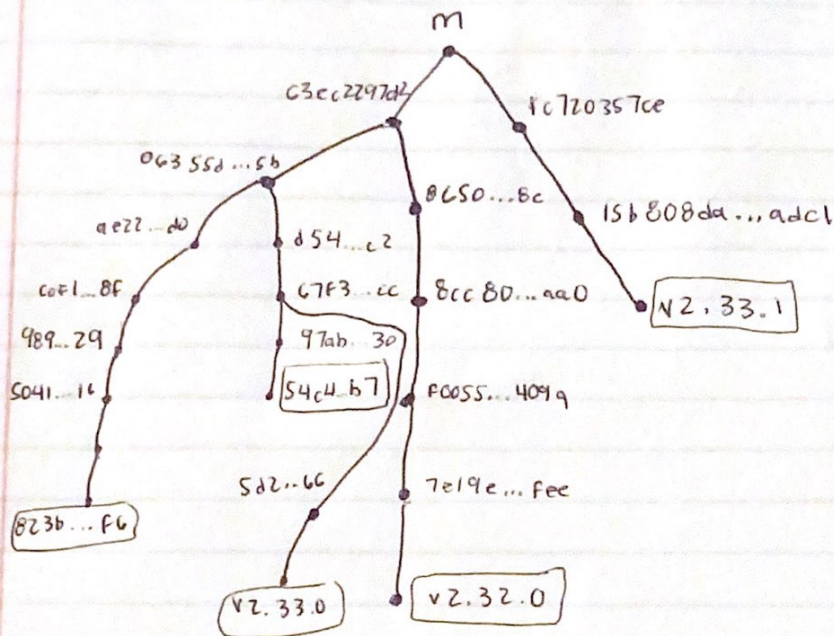 m
c3ec2297d2
fc720357ce
06355d...5b
8650...8c
15b808da...adc1
ae22...d0
d54...c2
c0f1...8f
67f3...cc
8cc80...aa0
v2.33.1
989...29
97ab...30
5041...16
54c4...b7
fc055...409a
5d2...66
7e19e...fee
823b...f6
v2.33.0
v2.32.0